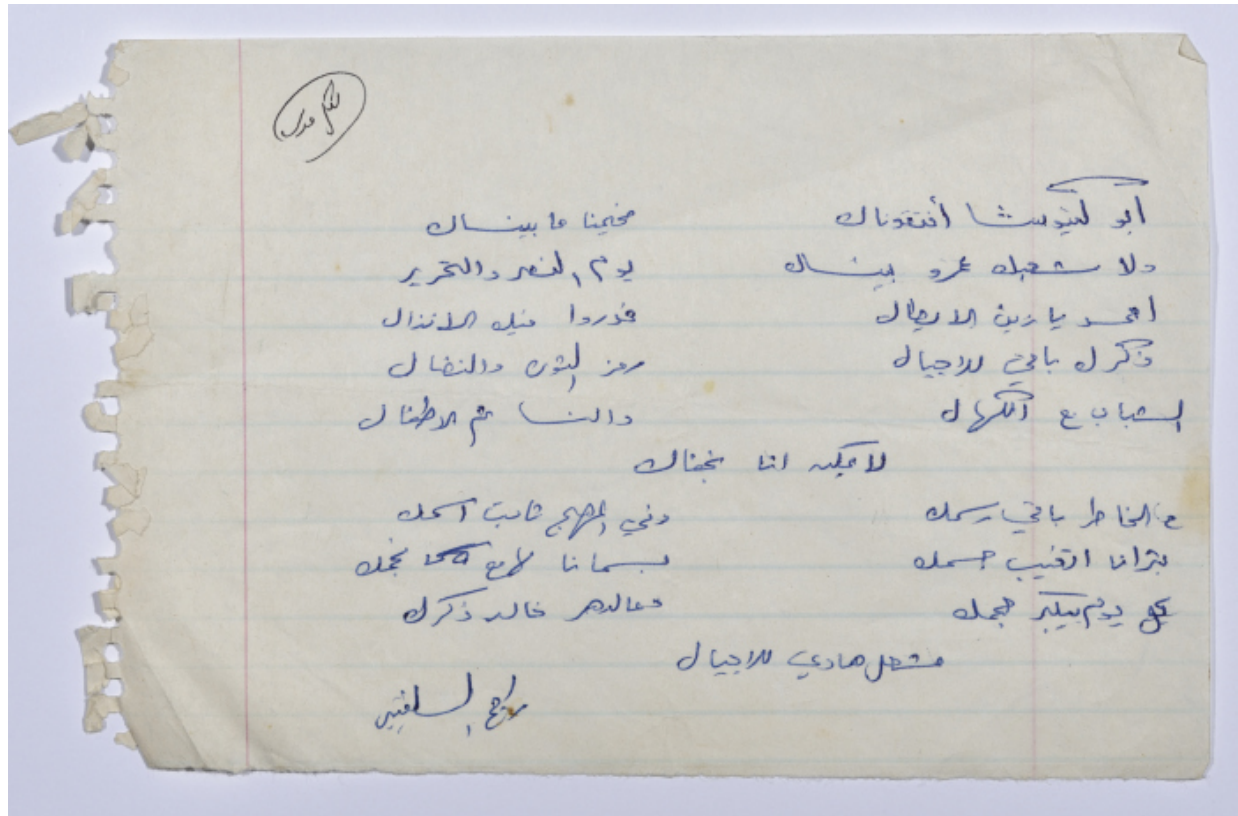 أبو كتيوشا أفتقدناك مخيمنا ما بينساك
ولا شعبك عمرو بينساك يوم النصر والتحرير
احمد يا زين الابطال غدروا فيك الانذال
ذكرك باقي للاجيال رمز الثوره والنضال
الشباب ع الكهال والنسا ثم الاطفال
لا يمكن انا نجفاك
ع الخاطر باقي رسمك وفي المهج ثابت اسمك
بترانا اتغيب جسمك بسمانا لامع نجمك
كل يوم بيكبر حجمك وعالدهر خالد ذكرك
مشعل هادي للاجيال
راجح السلفيتي